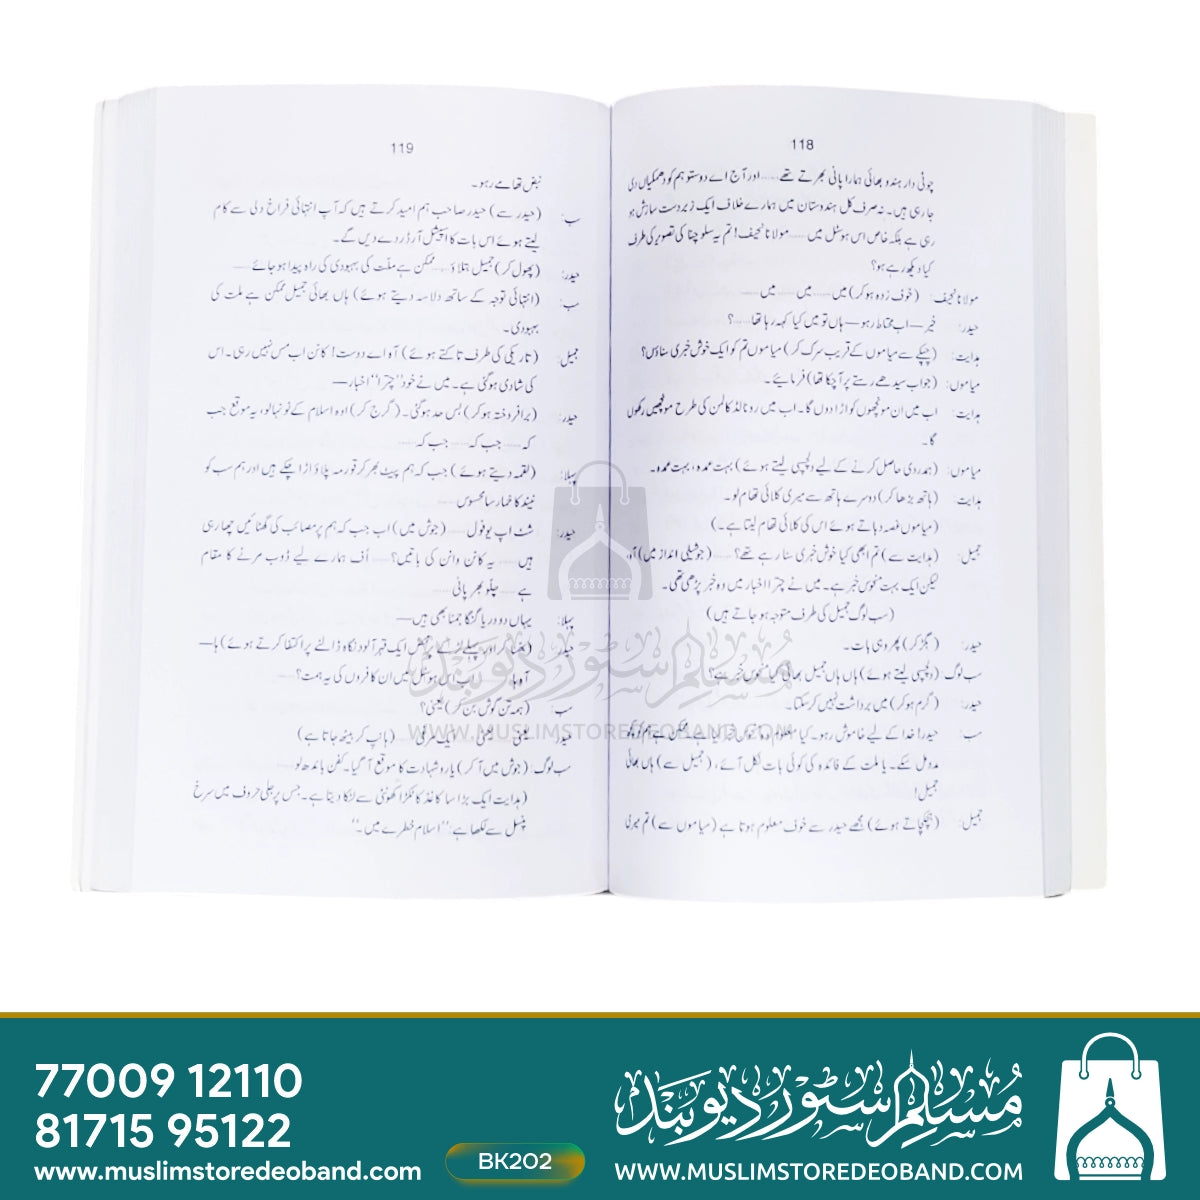 118
چوٹی دار ہندو بھائی ہمارا پانی بھرتے تھے...... اور آج اے دوستو ہم کو دھمکیاں دی
جا رہی ہیں۔ نہ صرف کل ہندوستان میں ہمارے خلاف ایک زبردست سازش ہو
رہی ہے بلکہ خاص اس ہوسٹل میں ...... مولانا نحیف! تم یہ سلوچنا کی تصویر کی طرف
کیا دیکھ رہے ہو؟
مولانا نحیف: (خوف زدہ ہو کر) میں ...... میں ...... میں ......
حیدر: خیر — اب محتاط رہو — ہاں تو میں کیا کہہ رہا تھا......؟
ہدایت: (چپکے سے میاموں کے قریب سرک کر) میاموں تم کو ایک خوش خبری سناؤں؟
میاموں: (جواب سیدھے رستے پر آ چکا تھا) فرمائیے۔
ہدایت: اب میں ان مونچھوں کو اڑا دوں گا۔ اب میں رونالڈ کالمن کی طرح مونچھیں رکھوں
گا۔
میاموں: (ہمدردی حاصل کرنے کے لیے دلچسپی لیتے ہوئے) بہت عمدہ، بہت عمدہ۔
ہدایت: (ہاتھ بڑھا کر) دوسرے ہاتھ سے میری کلائی تھام لو۔
(میاموں غصہ دباتے ہوئے اس کی کلائی تھام لیتا ہے۔)
جمیل: (ہدایت سے) تم ابھی کیا خوش خبری سنا رہے تھے؟...... (جوشیلی انداز میں) آہ
لیکن ایک بہت منحوس خبر ہے۔ میں نے چترا اخبار میں وہ خبر پڑھی تھی۔
(سب لوگ جمیل کی طرف متوجہ ہو جاتے ہیں)
حیدر: (بگڑ کر) پھر وہی بات۔
سب لوگ: (دلچسپی لیتے ہوئے) ہاں ہاں جمیل بھائی کیا منحوس خبر ہے؟
حیدر: (گرم ہو کر) میں برداشت نہیں کر سکتا۔
ب: حیدر! خدا کے لیے خاموش رہو۔ کیا معلوم وہ منحوس خبر کیا ہے۔ ممکن ہے ہم کوئی
مدد مل سکے۔ یا ملت کے فائدہ کی کوئی بات نکل آئے، (جمیل سے) ہاں بھائی
جمیل!
جمیل: (ہچکچاتے ہوئے) مجھے حیدر سے خوف معلوم ہوتا ہے (میاموں سے) تم میری
119
نبض تھامے رہو۔
ب: (حیدر سے) حیدر صاحب ہم امید کرتے ہیں کہ آپ انتہائی فراخ دلی سے کام
لیتے ہوئے اس بات کا اسپیشل آرڈر دے دیں گے۔
حیدر: (پھول کر) جمیل بتلاؤ...... ممکن ہے ملّت کی بہبودی کی راہ پیدا ہو جائے —
ب: (انتہائی توجہ کے ساتھ دلاسہ دیتے ہوئے) ہاں بھائی جمیل ممکن ہے ملت کی
بہبودی۔
جمیل: (تاریکی کی طرف تاکتے ہوئے) آہ اے دوست! کانن اب مس نہیں رہی۔ اس
کی شادی ہو گئی ہے۔ میں نے خود "چترا" اخبار —
حیدر: (برافروختہ ہو کر) بس حد ہو گئی۔ (گرج کر) اوہ اسلام کے نونہالو، یہ موقع جب
کہ ...... جب کہ ...... جب کہ ......
پہلا: (لقمہ دیتے ہوئے) جب کہ ہم پیٹ بھر کر قورمہ پلاؤ اڑا چکے ہیں اور ہم سب کو
نیند کا خمار سا محسوس —
حیدر: شٹ اپ یوفول...... (جوش میں) اب جب کہ ہم پر مصائب کی گھٹائیں چھا رہی
ہیں ...... یہ کانن وانن کی باتیں؟ ...... اُف ہمارے لیے ڈوب مرنے کا مقام
ہے ...... چلّو بھر پانی
پہلا: یہاں دو دریا گنگا جمنا بھی ہیں —
حیدر: پہلے لڑکے پر ایک قہر آلود نگاہ ڈالنے پر اکتفا کرتے ہوئے) ہا —
آہ! اب اس ہوسٹل میں ان کافروں کی یہ ہمت؟ ......
ب: (ہمہ تن گوش بن کر) یعنی؟
حیدر: یعنی ...... یعنی ...... ایک مرغی ...... (ہانپ کر بیٹھ جاتا ہے)
سب لوگ: (جوش میں آ کر) یارو شہادت کا موقع آ گیا۔ کفن باندھ لو —
(ہدایت ایک بڑا سا کاغذ کا ٹکڑا کھونٹی سے لٹکا دیتا ہے۔ جس پر جلی حروف میں سرخ
پنسل سے لکھا ہے: "اسلام خطرے میں۔"
مسلم سٹور دیوبند
WWW.MUSLIMSTOREDEOBAND.COM
77009 12110
81715 95122
www.muslimstoredeoband.com
BK202
مسلم سٹور دیوبند
WWW.MUSLIMSTOREDEOBAND.COM